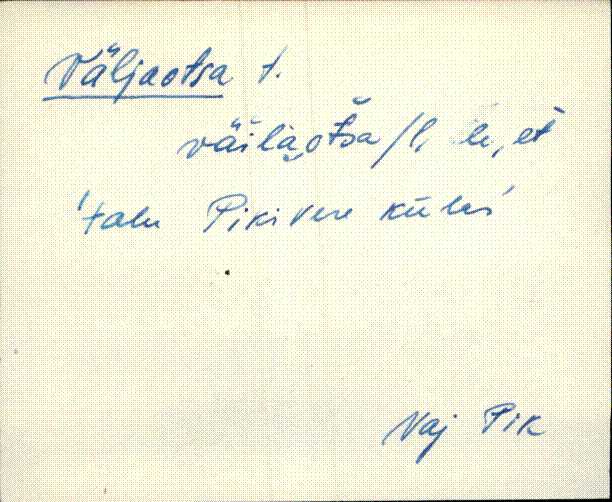 Väljaotsa t.
väilaotsa /l, le, et
'talu Pikivere külas'
Vaj Pik